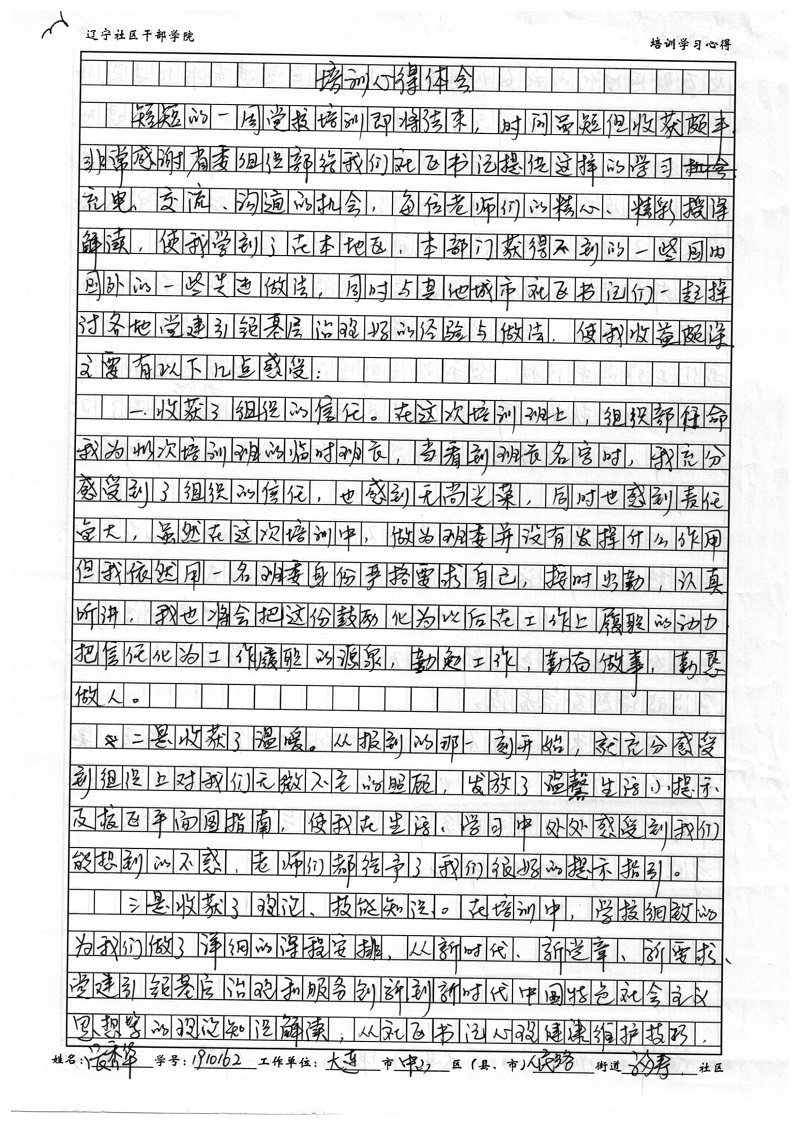 辽宁社区干部学院 培训学习心得
培训心得体会
短短的一周党校培训即将结束，时间虽短但收获颇丰
非常感谢省委组织部给我们社区书记提供这样的学习机会
充电、交流、沟通的机会，每位老师们的精心、精彩授课
解读，使我学到了在本地区，本部门获得不到的一些国内
国外的一些先进做法，同时与其他城市社区书记们一起探
讨各地党建引领基层治理好的经验与做法，使我收益颇深
主要有以下几点感受：
一、收获了组织的信任。在这次培训班上，组织部任命
我为此次培训班的临时班长，当看到班长名字时，我充分
感受到了组织的信任，也感到无尚光荣，同时也感到责任
重大，虽然在这次培训中，做为班委并没有发挥什么作用
但我依然用一名班委身份严格要求自己，按时出勤，认真
听讲，我也将会把这份鼓励化为以后在工作上履职的动力
把信任化为工作履职的源泉，勤勉工作，勤奋做事，勤恳
做人。
二是收获了温暖。从报到的那一刻开始，就充分感受
到组织上对我们无微不至的照顾，发放了温馨生活小提示
及校区平面图指南，使我在生活、学习中处处感受到我们
能想到的不惑，老师们都给予了我们很好的提示指引。
三是收获了理论、技能知识。在培训中，学校细致的
为我们做了详细的课程安排，从新时代、新党章、新要求、
党建引领基层治理和服务创新到新时代中国特色社会主义
思想等的理论知识解读，从社区书记心理健康维护技巧，
姓名： 学号：1910162 工作单位：大连 市 中山 区（县、市）人民路 街道 社区